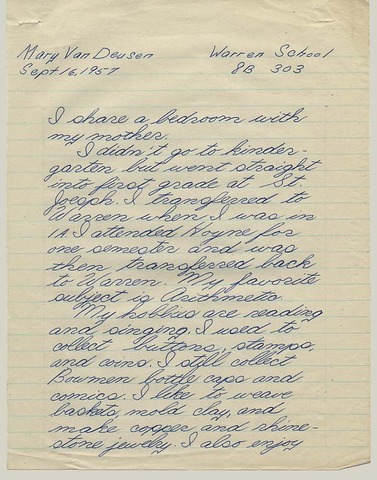 Mary Van Deusen Warren School
Sept 16, 1957 8B 303
I share a bedroom with
my mother.
I didn't go to kinder-
garten but went straight
into first grade at St.
Joesph. I transferred to
Warren when I was in
1A. I attended Hoyne for
one semester and was
then transferred back
to Warren. My favorite
subject is Arithmetic.
My hobbies are reading
and singing. I used to
collect buttons, stamps,
and coins. I still collect
Bowmen bottle caps and
comics. I like to weave
baskets, mold clay, and
make copper and rhine-
stone jewelry. I also enjoy